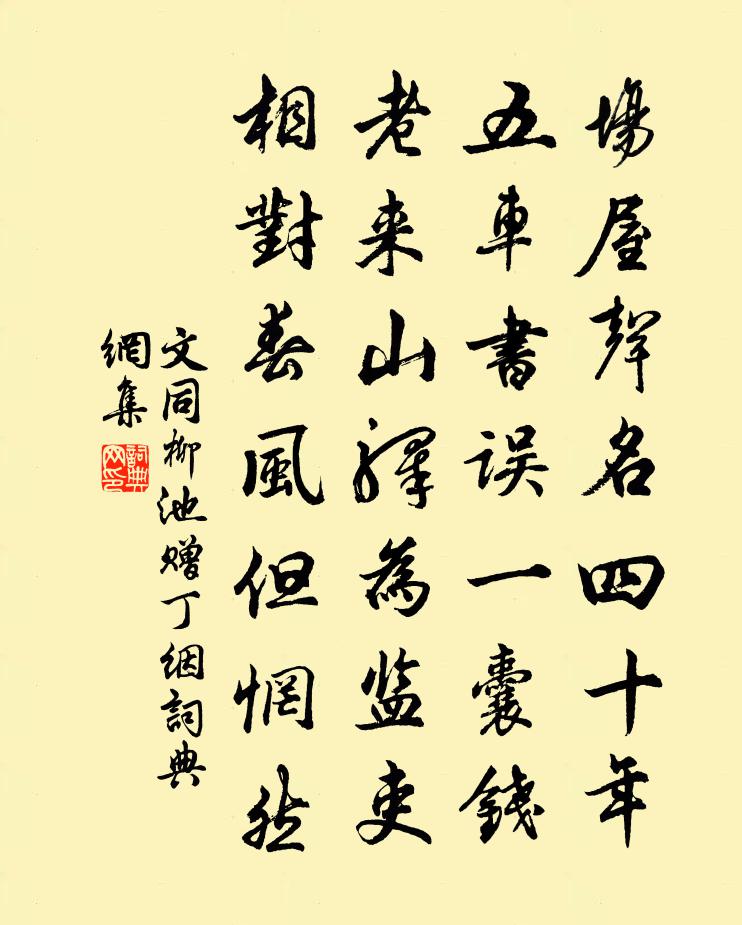 場屋聲名四十年
五車書誤一囊錢
老来山驛為监吏
相對春風但惘然
文同柳池赠丁絪詞典
網集
詞典网印